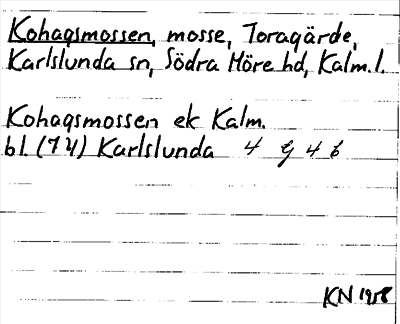 Kohagsmossen, mosse, Toragärde,
Karlslunda sn, Södra Möre hd, Kalm. l.
Kohagsmossen ek Kalm.
bl. (74) Karlslunda 4 G 4 b
KN 1958